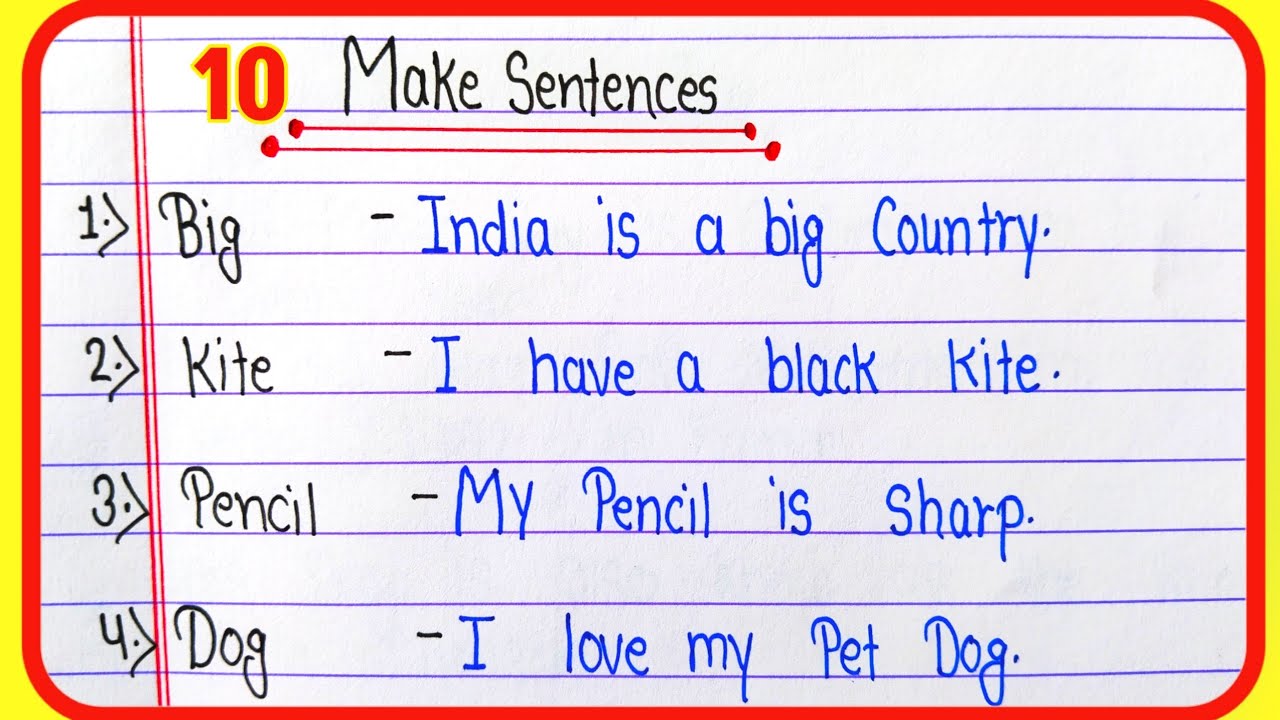 10 Make Sentences
1.) Big - India is a big Country.
2.) Kite - I have a black Kite.
3.) Pencil - My Pencil is Sharp.
4.) Dog - I love my Pet Dog.